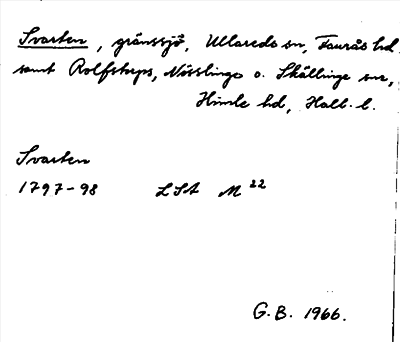 Svarten, gränssjö, Ullareds sn, Faurås hd
samt Rolfstorps, Nösslinge o. Skällinge snr,
Himle hd, Hall. l.
Svarten
1797-98 LSA M 22
G.B. 1966.